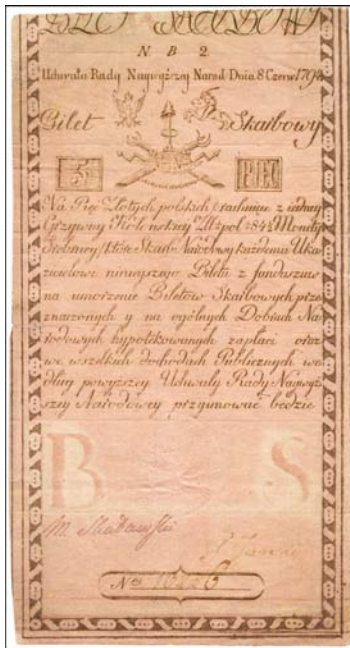 N B 2
Uchwała Rady Naywyższey Narod: Dnia 8 Czerw: 1794
Bilet Skarbowy
5 PIĘĆ
Na Pięć Złotych polskich rachuiąc z iedney
Grzywny Kolońskiey Złł: pol: 84½ Monety
Srebrney, które Skarb Narodowy każdemu Uka-
zicielowi ninieyszego Biletu z funduszu
na umorzenie Biletów Skarbowych prze-
znaczonych y na ogólnych Dobrach Na-
rodowych hypotekowanych zapłaci oraz
we wszelkich dochodach Publicznych we-
dług powyższey Uchwały Rady Naywyż-
szey Narodowey przyymować będzie
B S
M.
Nro